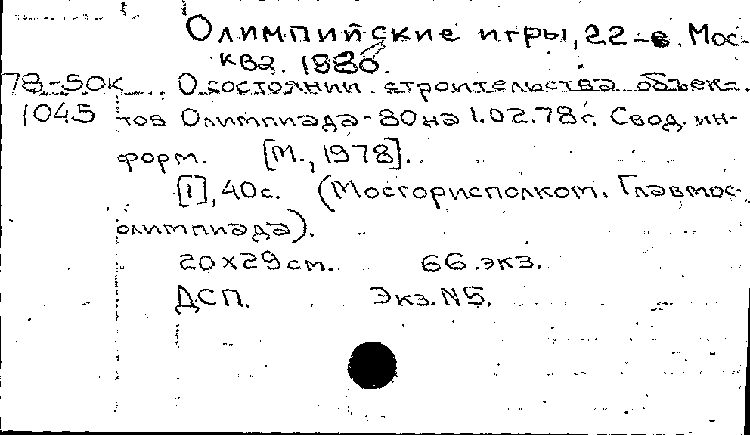 Олимпийские игры, 22-е. Мос-
ква. 1980.
78-50к О состоянии строительства объек-
1045 тов Олимпиада-80 на 1.02.78 г. Свод. ин-
форм. [М., 1978].
[1], 40 с. (Мосгорисполком. Главмос-
олимпиада).
20x29 см. 66 экз.
ДСП. Экз. N5.